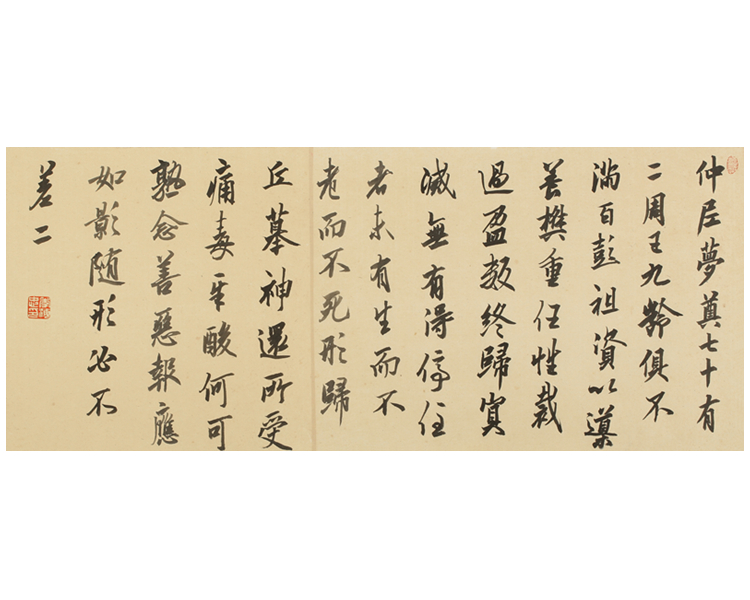 仲尼夢奠七十有
二周王九齡俱不
滿百彭祖資以導
養樊重任性裁
過盈數終歸冥
滅無有得停住
者未有生而不
老而不死形歸
丘墓神還所受
痛毒辛酸何可
熟念善惡報應
如影隨形必不
差二